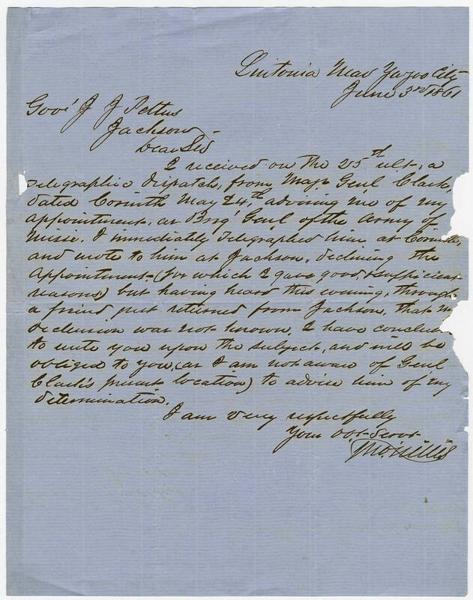 Quitonia Near Yazoo City
June 3rd 1861
Gov'r J J Pettus
Jackson
Dear Sir
I received on the 25th ult, a
Telegraphic Dispatch, from Maj Genl Clark
dated Corinth May 24th advising me of my
appointment, as Brig Genl of the Army of
Missi. I immediately Telegraphed him at Corinth,
and wrote to him at Jackson, declining the
appointment, (for which I gave good & sufficient
reasons) but having heard this evening, through
a friend, just returned from Jackson, that my
declension was not known, I have concluded
to write you upon the subject, and will be
obliged to you, (as I am not aware of Genl
Clark's present location) to advise him of my
determination.
I am very respectfully
Your Obt Servt